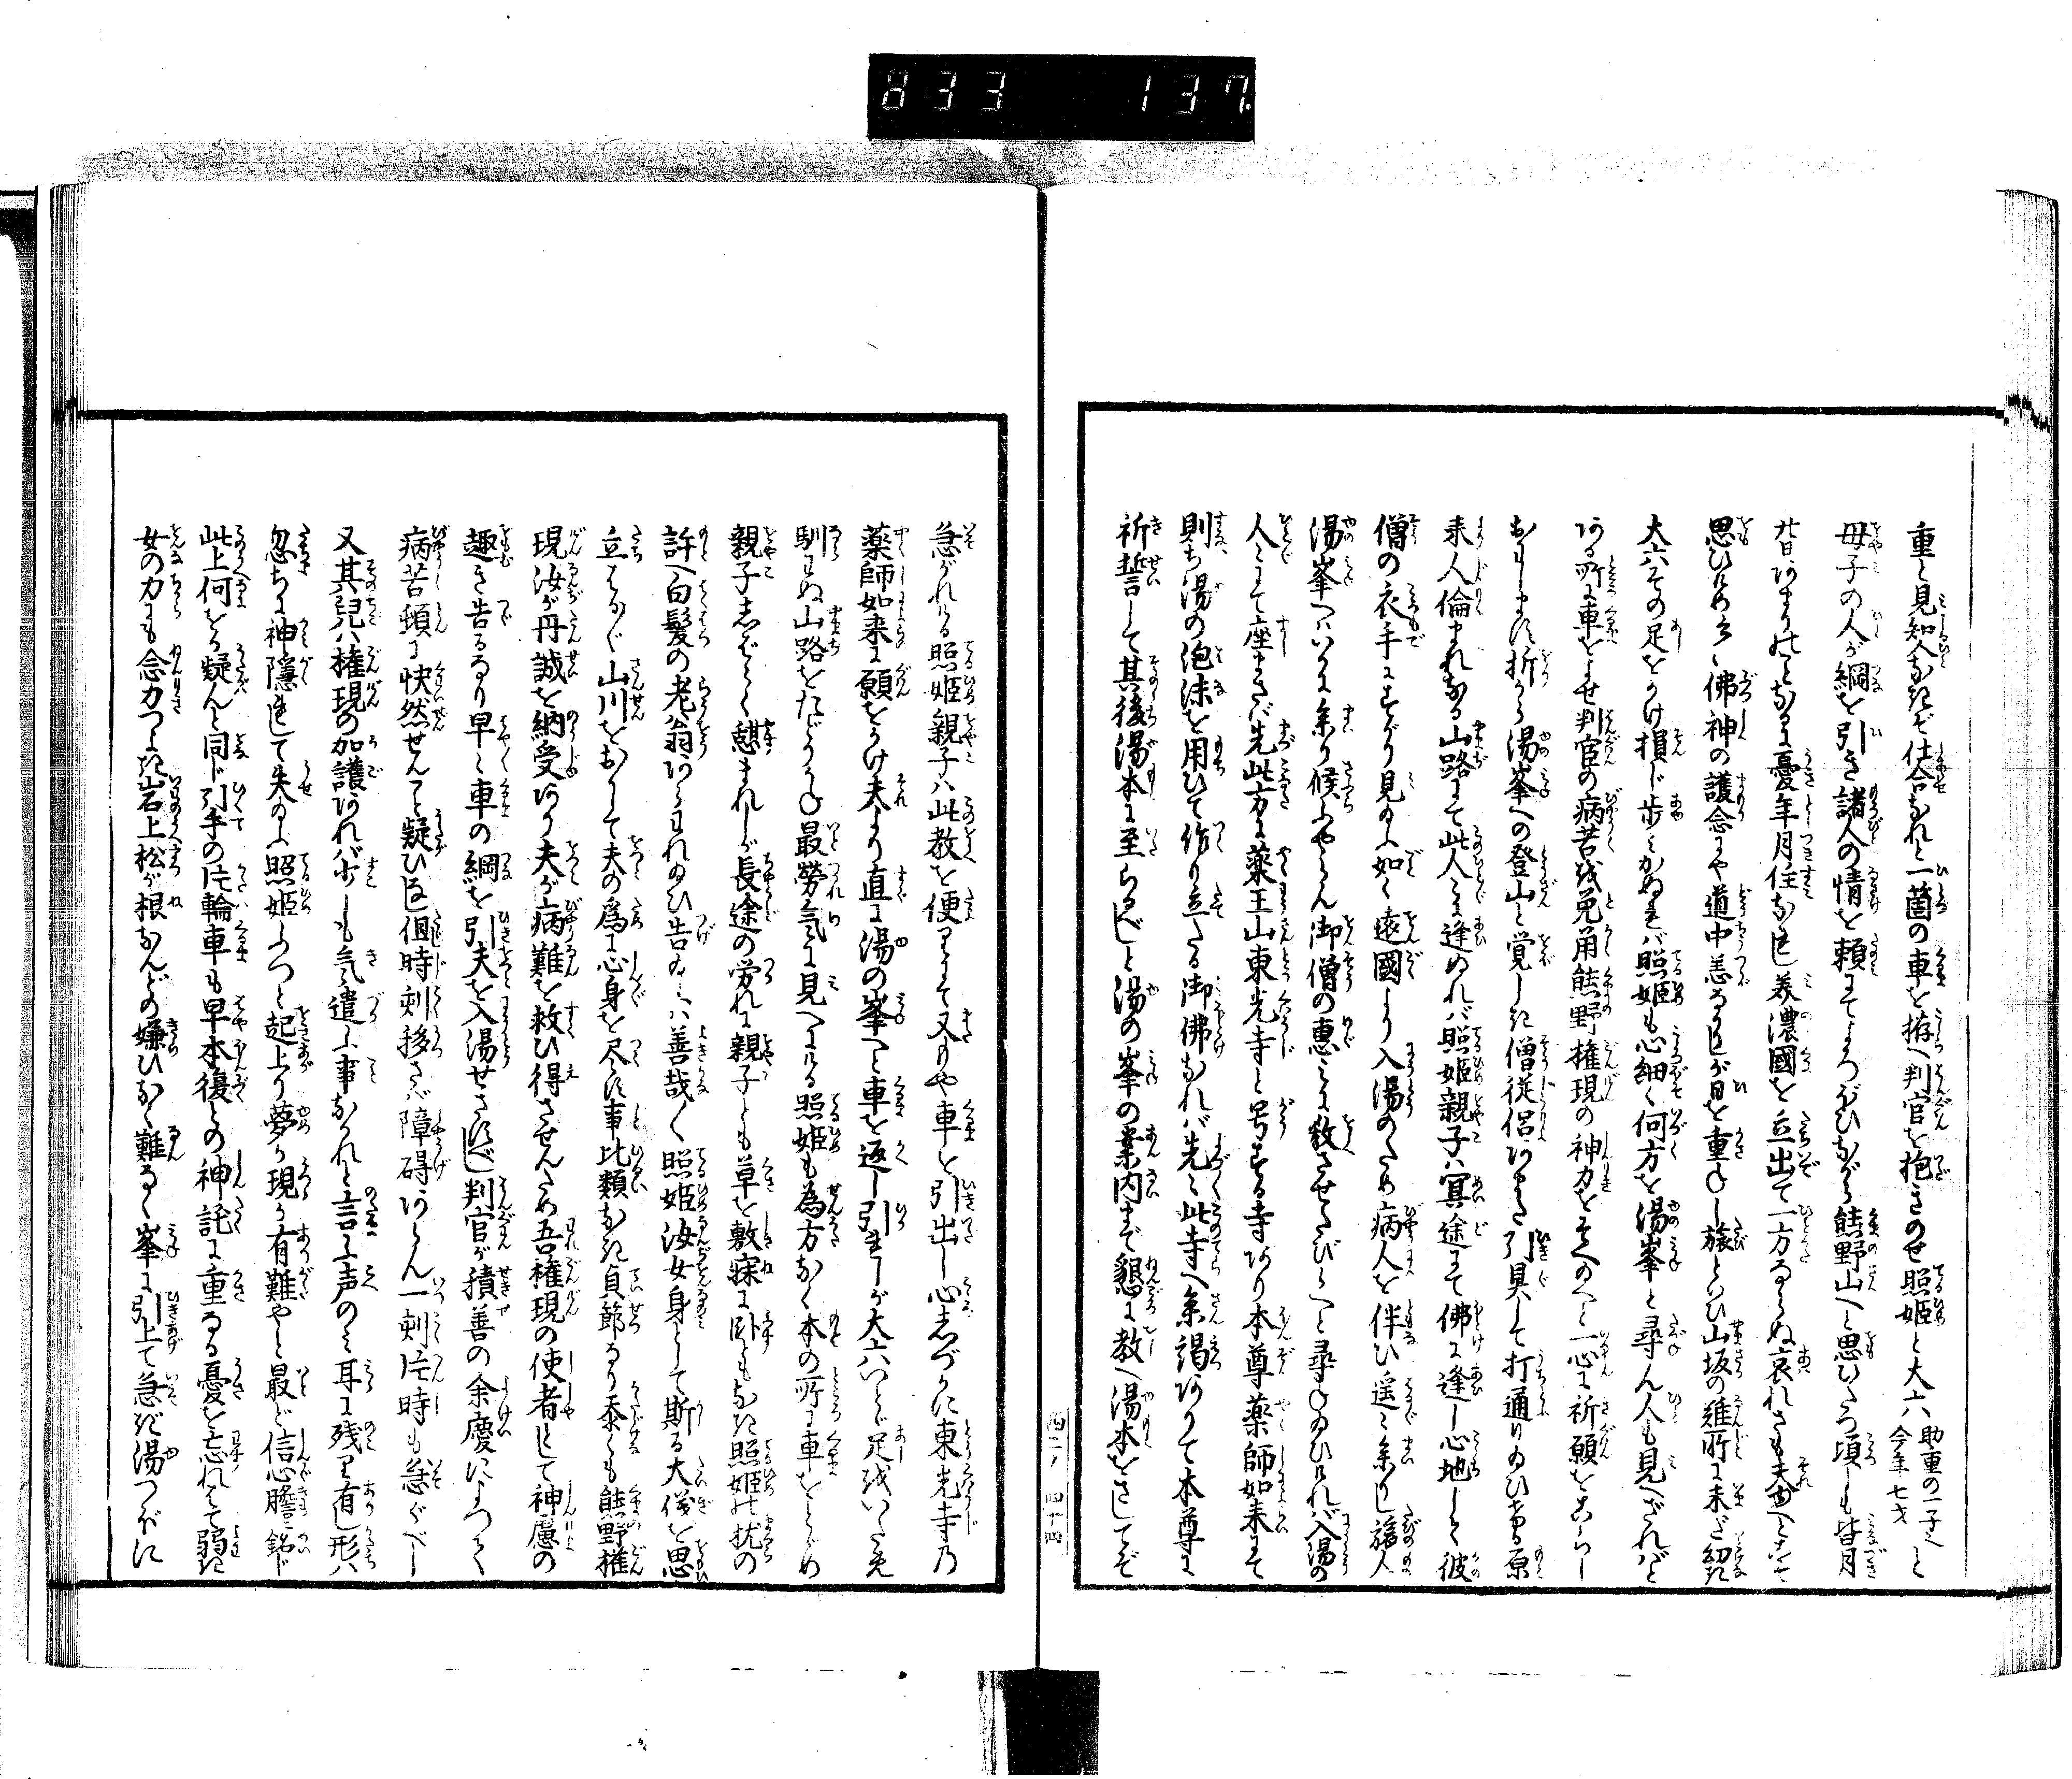 833 137
重と見知人なければ仕合なれと一箇の車を拵へ判官を抱きのせ照姫と大六助重の一子也今年七才と
母子の人が綱を引き諸人の情を頼にてよろぼひながら熊野山へと思ひたつ頃しも皆月
廿日あまりのことなるに憂年月住なれし美濃國を立出て一方ならぬ哀れさも夫ゆへとこそ
思ひあきらめ佛神の護念にや道中恙なしが日を重ねし旅といひ山坂の難所に未だ幼き
大六その足をかけ損じ歩みかぬれば照姫も心細く何方を湯峯と尋ん人も見へざればと
ある所に車をよせ判官の病苦を兎角熊野権現の神力をそへのへと一心に祈願をこらし
おわします折から湯峯への登山と覚しき僧従侶あまた引具して打通りゐひける原
来人倫まれなる山路にて此人々に逢ぬれば照姫親子ハ冥途にて佛に逢し心地して彼
僧の衣手にすがり見のふ如く遠國より入湯のため病人を伴ひ遥々参りし旅人
湯峯へハいかに参り候ふやらん御僧の恵みに教させたびくへと尋ねゐひければ入湯の
人にて座まさば先此方に薬王山東光寺と号する寺あり本尊薬師如来にて
則ち湯の泡沫を用ひて作り立たる御佛なれば先々此寺へ参詣ありて本尊に
祈誓して其後湯本に至らるべしと湯の峯の案内まで懇に教へ湯本をさしてぞ
急がれける照姫親子ハ此教を便りにて又もや車を引出し心しづかに東光寺乃
薬師如来に願をかけ夫より直に湯の峯へと車を返し引ましが大六いとど足をいため
馴ぬ山路をたどりかね最労気に見へにける照姫も為方なく本の所に車をとどめ
親子しばらく憩まれしが長途の労れに親子とも草を敷寐に臥ともなき照姫の枕の
許へ白髪の老翁あらわれゐひ告ゐハ善哉〱照姫汝女身として斯る大儀を思
立はるばる山川をおりて夫の為に心身を尽す事比類なき貞節なり忝くも熊野権
現汝が丹誠を納受あり夫が病難を救ひ得させんため吾権現の使者として神慮の
趣き告るなり早く車の綱を引夫を入湯せさすべし判官が積善の余慶によつて
病苦頓に快然せんこと疑ひなし但時刻移さば障碍あらん一刻片時も急ぐべし
又其兒ハ権現の加護あれば少しも気遣ふ事なかれと言ふ声のミ耳に残り有し形ハ
忽ちに神隠れして失のふ照姫ふつと起上り夢か現か有難やと最ど信心膽に銘じ
此上何をか疑んと同じ引手の片輪車も早本復との神託に重なる憂を忘れはて弱き
女の力にも念力つよき岩上松が根なんどの嫌ひなく難なく峯に引上て急ぎ湯つぼに
四二ノ 四十四